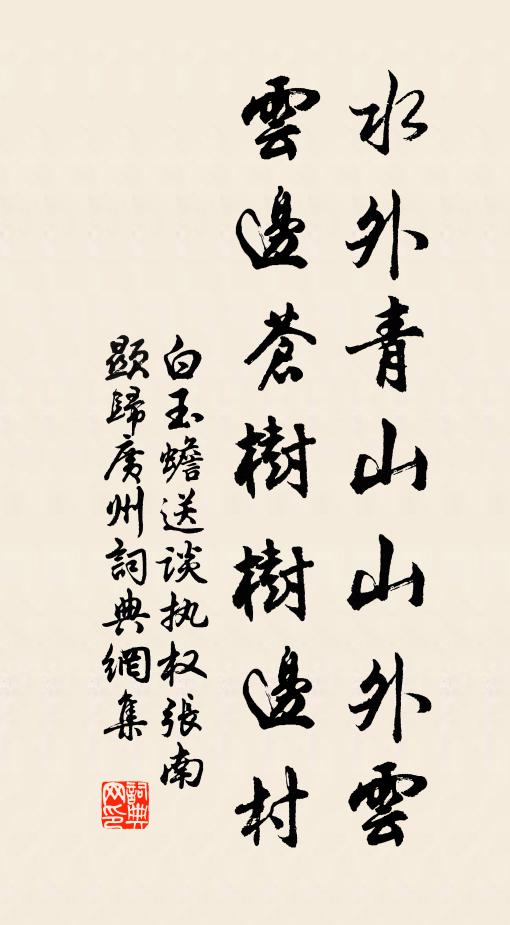 水外青山山外雲
雲邊蒼樹樹邊村
白玉蟾送谈执权張南
顯歸廣州詞典網集
詞典
网印